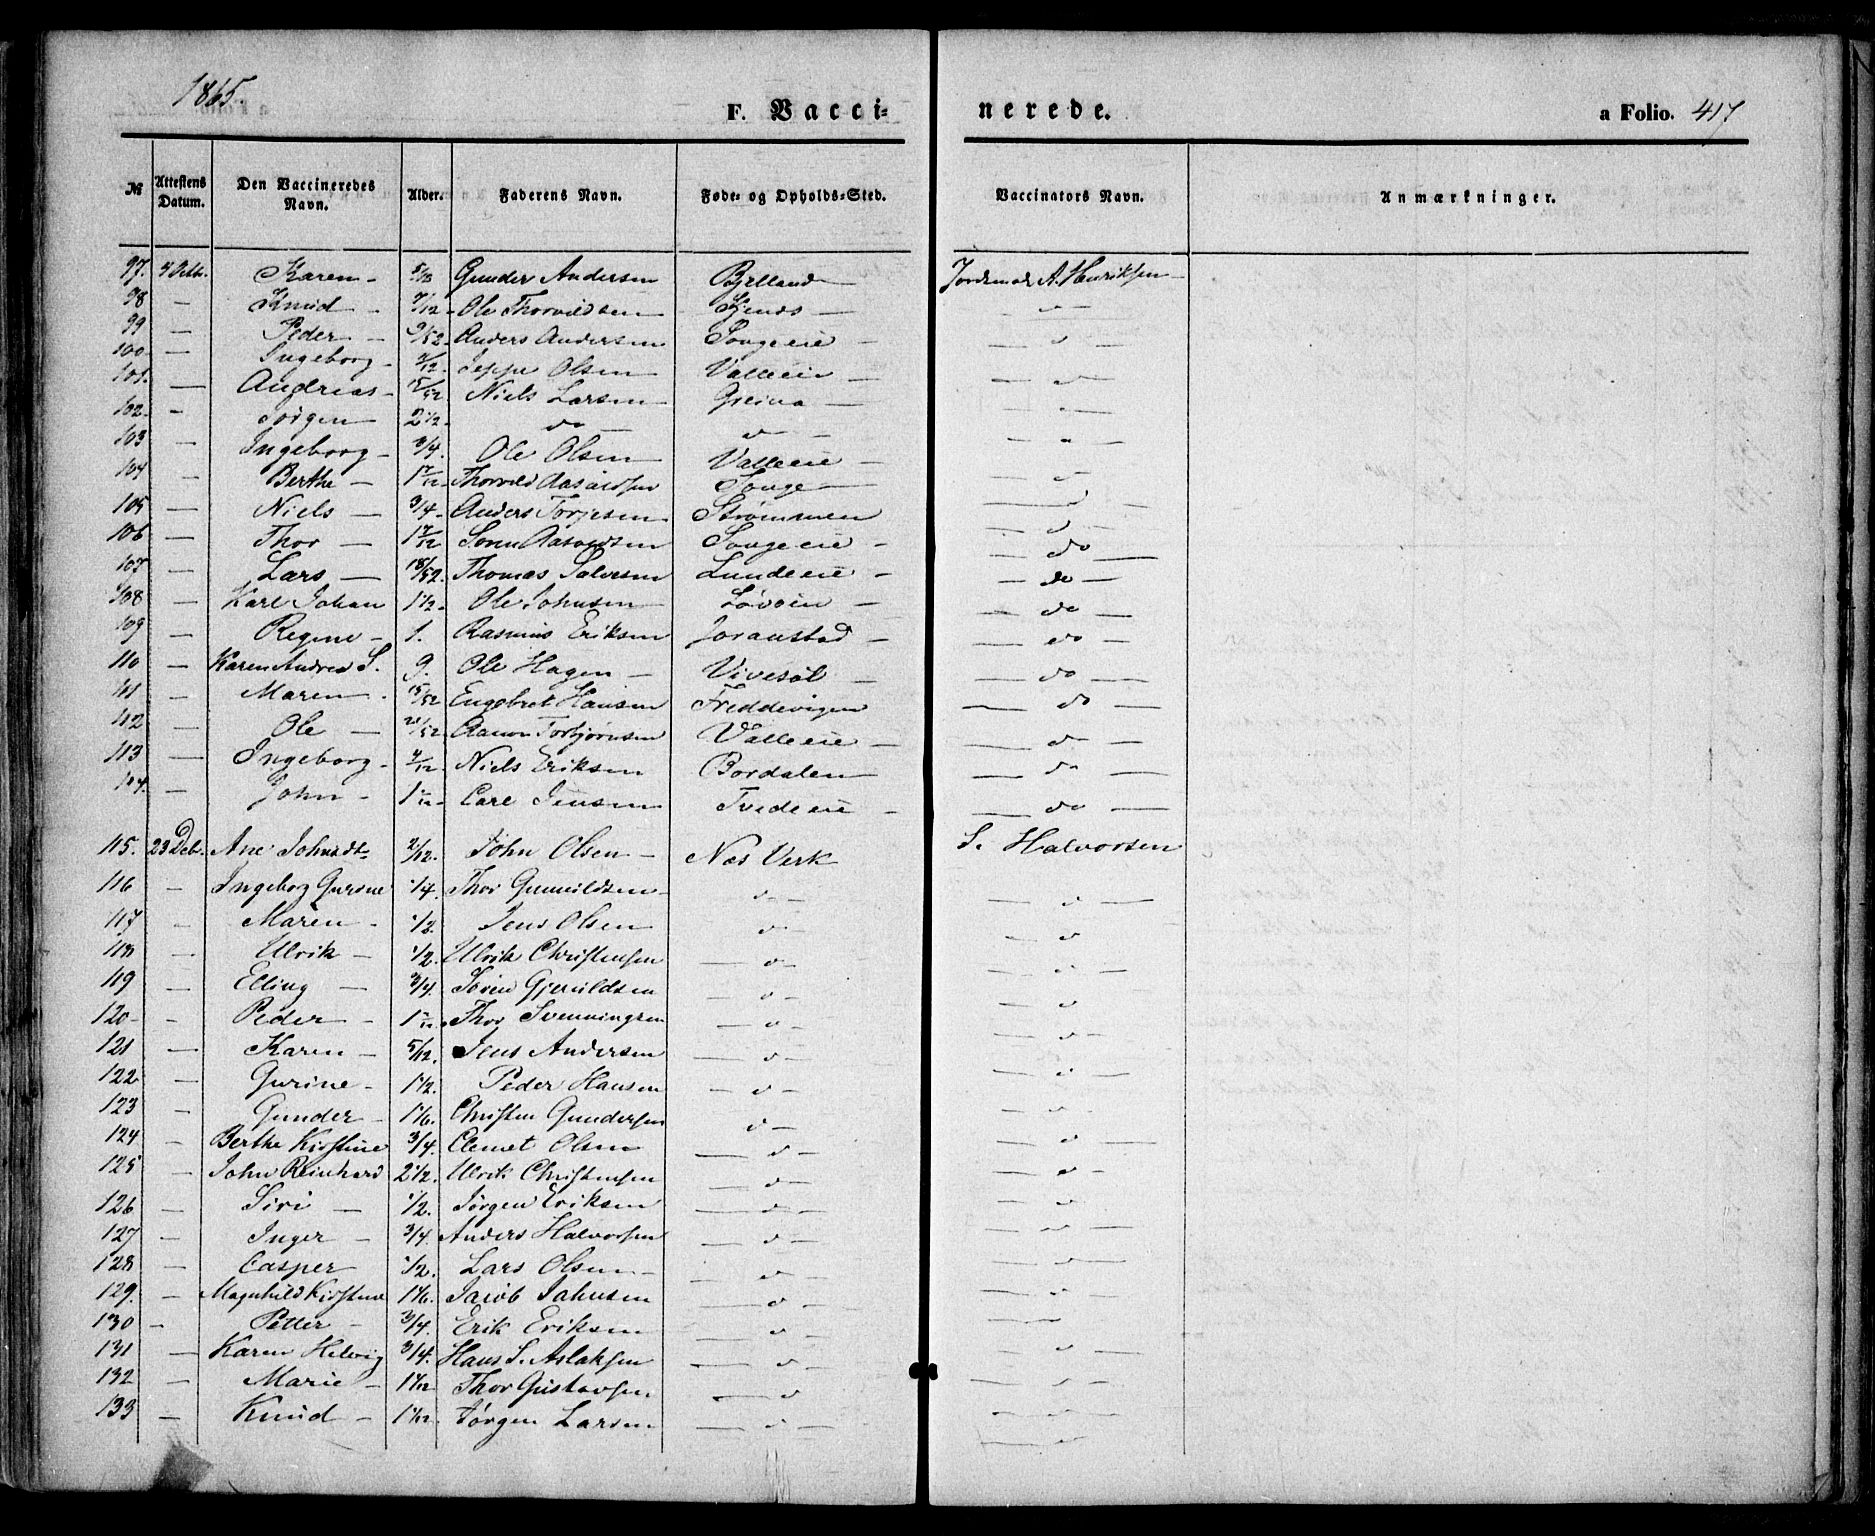 1865.
F. Vacci=
nerede.
a Folio. 417
№ Attestens Datum. Den Vaccineredes Navn. Alder. Faderens Navn. Føde- og Opholds-Sted. Vaccinators Navn. Anmærkninger.
97. Octb. Karen - Gunder Andersen Bjelland Jordemor A. Henriksen
98 - Knud - 7/12 - Ole Thorvildsen
99 - Peder - 9/52 - Anders Andersen Songeeie -
100 - Ingeborg - 7/12 - Jeppe Olsen Valleeie -
101. - Andreas - 15/52 Niels Larsen Greina -
102 - Jørgen - 2 1/2 do -
103 - Ingeborg - 3/4. Ole Olsen Valleeie -
104 - Berthe - Thorvild Aasvildsen Songe -
105 - Niels - 3/4 - Anders Torjesen Strømmen
106 - Thor - Søren Aasvildsen Songeeie - - do -
107 - Lars - 18/52. Thomas Salvesen Lundeeie - - do -
108 - Karl Johan 1 1/2 - Ole Johnsen - do -
109 - Regine - 1. Rasmus Eriksen Joranstad - - do -
110 - Karen Andrea S. 9. Ole Hagen - Vivesøl - - do -
111 - Maren - 15/52 Engebret Hansen - do -
112 - Ole - 21/52 Aanon Torbjørnsen Valleeie - - do -
113 - Ingeborg - 7/12 - Niels Eriksen Bordalen - do -
114. - John - Carl Jensen Tvedeeie - - do -
115. 23 Deb. Ane 2/12. John Olsen - Næs Verk S. Halvorsen
116 - Ingeborg Gurine 1/4 Thor Gunnildsen -
117 - Maren - 1/2. Jens Olsen
118 - Ulrik - 1/2. Ulrik Christensen
119 - Elling - 3/4. Søren Gjeruldsen
120 - Peder - Thor Svenningsen
121 - Karen - 5/12. Jens Andersen
122 - Gurine - 1 1/2. Peder Hansen
123 - Gunder - 1 1/6. Christen Gundersen
124 - Berthe Kirstine 3/4. Clemet Olsen
125 - John Reinhard 2 1/2. Ulrik Christensen
126 - Siri - 1/2. Jørgen Eriksen
127 - Inger - 3/4. Anders Halvorsen
128 - Casper 1/2. Lars Olsen -
129. - Magnhild Kirstine 1 1/6. Jacob Johnsen
130 - Petter - 3/4. Erik Eriksen
131 - Karen Helvig 3/4. Hans S. Aslaksen
132 - Marie - Thor Gustavsen
133 - Knud - Jørgen Larsen